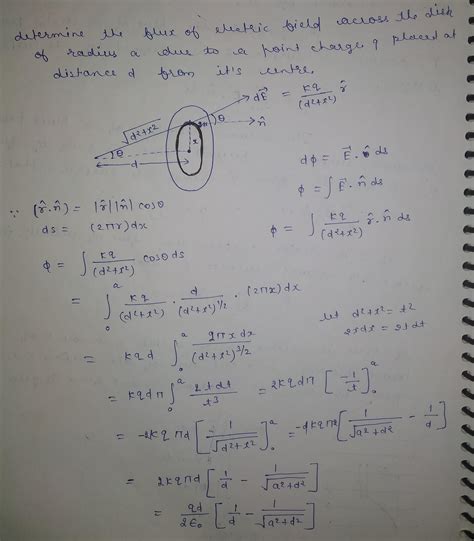 determine the flux of electric field across the disk
of radius a due to a point charge q placed at
distance d from it's centre.
√(d²+x²) dE⃗ = kq/(d²+x²) r̂
θ θ n̂
x
d dφ = E⃗ · n̂ ds
∵ (r̂.n̂) = |r̂||n̂| cosθ φ = ∫ E⃗. n̂ ds
ds = (2πx)dx φ = ∫ kq/(d²+x²) r̂. n̂ ds
φ = ∫ kq/(d²+x²) cosθ ds
= ∫₀ᵃ kq/(d²+x²) · d/(d²+x²)^1/2 · (2πx)dx
let d²+x² = t²
2xdx = 2tdt
= kqd ∫₀ᵃ 2πxdx/(d²+x²)^3/2
= kqdπ ∫₀ᵃ 2tdt/t³ = 2kqdπ [-1/t]₀ᵃ
= -2kqπd [1/√(d²+x²)]₀ᵃ = [1/√(a²+d²) - 1/d]
= 2kqπd [1/d - 1/√(a²+d²)]
= qd/2ε₀ [1/d - 1/√(a²+d²)]